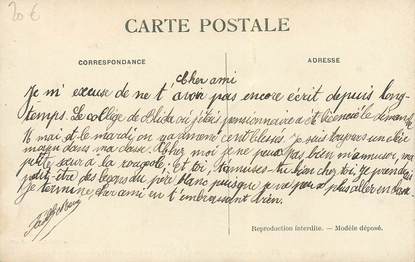 20 €
CARTE POSTALE
CORRESPONDANCE
ADRESSE
Cher ami
Je m'excuse de ne t'avoir pas encore écrit depuis long-
temps. Le collège de Blida où j'étais pensionnaire a été licencié le dimanche
16 mai et le mardi on a cent blessés. Je suis toujours un
dans ma classe. Chez moi je ne peux pas bien m'amuser, ma
petite sœur a la rougeole. Et toi, t'amuses-tu bien chez toi, je prendrai
peut-être des leçons du père blanc puisque je ne peux plus aller en classe
Je termine, cher ami en t'embrassant bien.
Reproduction interdite. — Modèle déposé.